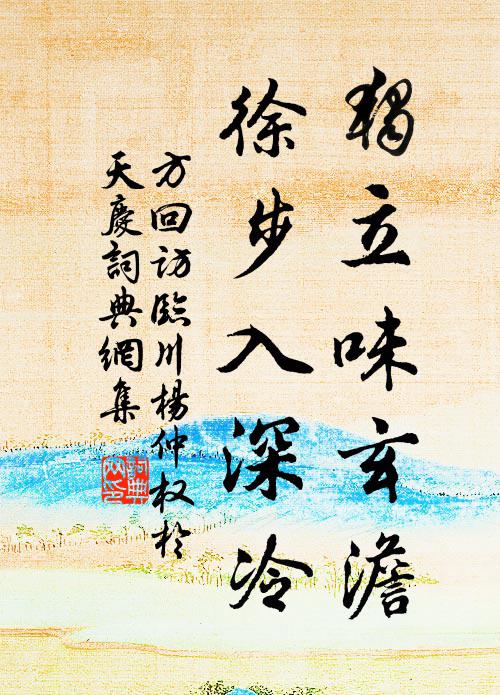 獨立味玄澹
徐步入深冷
方回訪臨川楊仲权於
天慶詞典網集